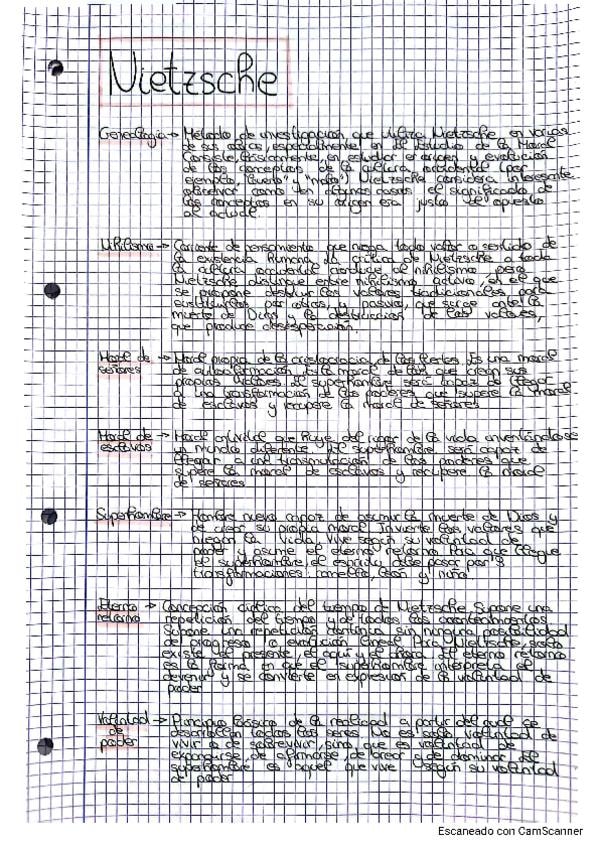 Nietzsche
Genealogía → Método de investigación que utiliza Nietzsche en varias
de sus obras, especialmente en el estudio de la Moral
Consiste, básicamente, en estudiar el origen y evolución
de los conceptos de la cultura occidental (por
ejemplo, "bueno" y "malo") Nietzsche considera interesante
observar como en algunos casos el significado de
los conceptos en su origen era justo el opuesto
al actual.
Nihilismo → Corriente de pensamiento que niega todo valor o sentido de
la existencia humana. La crítica de Nietzsche a toda
la cultura occidental conduce al nihilismo, pero
Nietzsche distingue entre nihilismo activo, el el que
se propone destruir los valores tradicionales para
sustituirlos por otros, y pasivo, que surge ante la
muerte de Dios y la destrucción de los valores,
que produce desesperación.
Moral de → Moral propia de la aristocracia, de los fuertes. Es una moral
señores de autoafirmación. Es la moral de los que crean sus
propios valores. El superhombre será capaz de llegar
a una transformación de los poderes que supere la moral
de esclavos y recupere la moral de señores
Moral de → Moral que huye del rigor de la vida inventándose
esclavos un mundo diferente. El superhombre será capaz de
llegar a una transmutación de los poderes que
supere la moral de esclavos y recupere la moral
de señores
Superhombre → Hombre nuevo capaz de asumir la muerte de Dios y
de crear su propia moral. Invierte los valores que
niegan la vida, vive según su voluntad de
poder y asume el eterno retorno. Para que llegue
el superhombre, el espíritu debe pasar por 3
transformaciones: camello, león y niño.
Eterno → Concepción cíclica del tiempo de Nietzsche. Supone una
retorno repetición del tiempo y de todos los acontecimientos
Supone una repetición continua sin ninguna posibilidad
de progreso o evolución lineal. Para Nietzsche, solo
existe el presente, el aquí y el ahora. El eterno retorno
es la forma en que el superhombre interpreta el
devenir y se convierte en expresión de la voluntad de
poder
Voluntad → Principio básico de la realidad a partir del cual se
de desarrollan todos los seres. No es solo voluntad de
poder vivir o de sobrevivir, sino que es voluntad de
expandirse, de afirmarse, de crear o de dominar. El
superhombre es aquel que vive según su voluntad
de poder
Escaneado con CamScanner